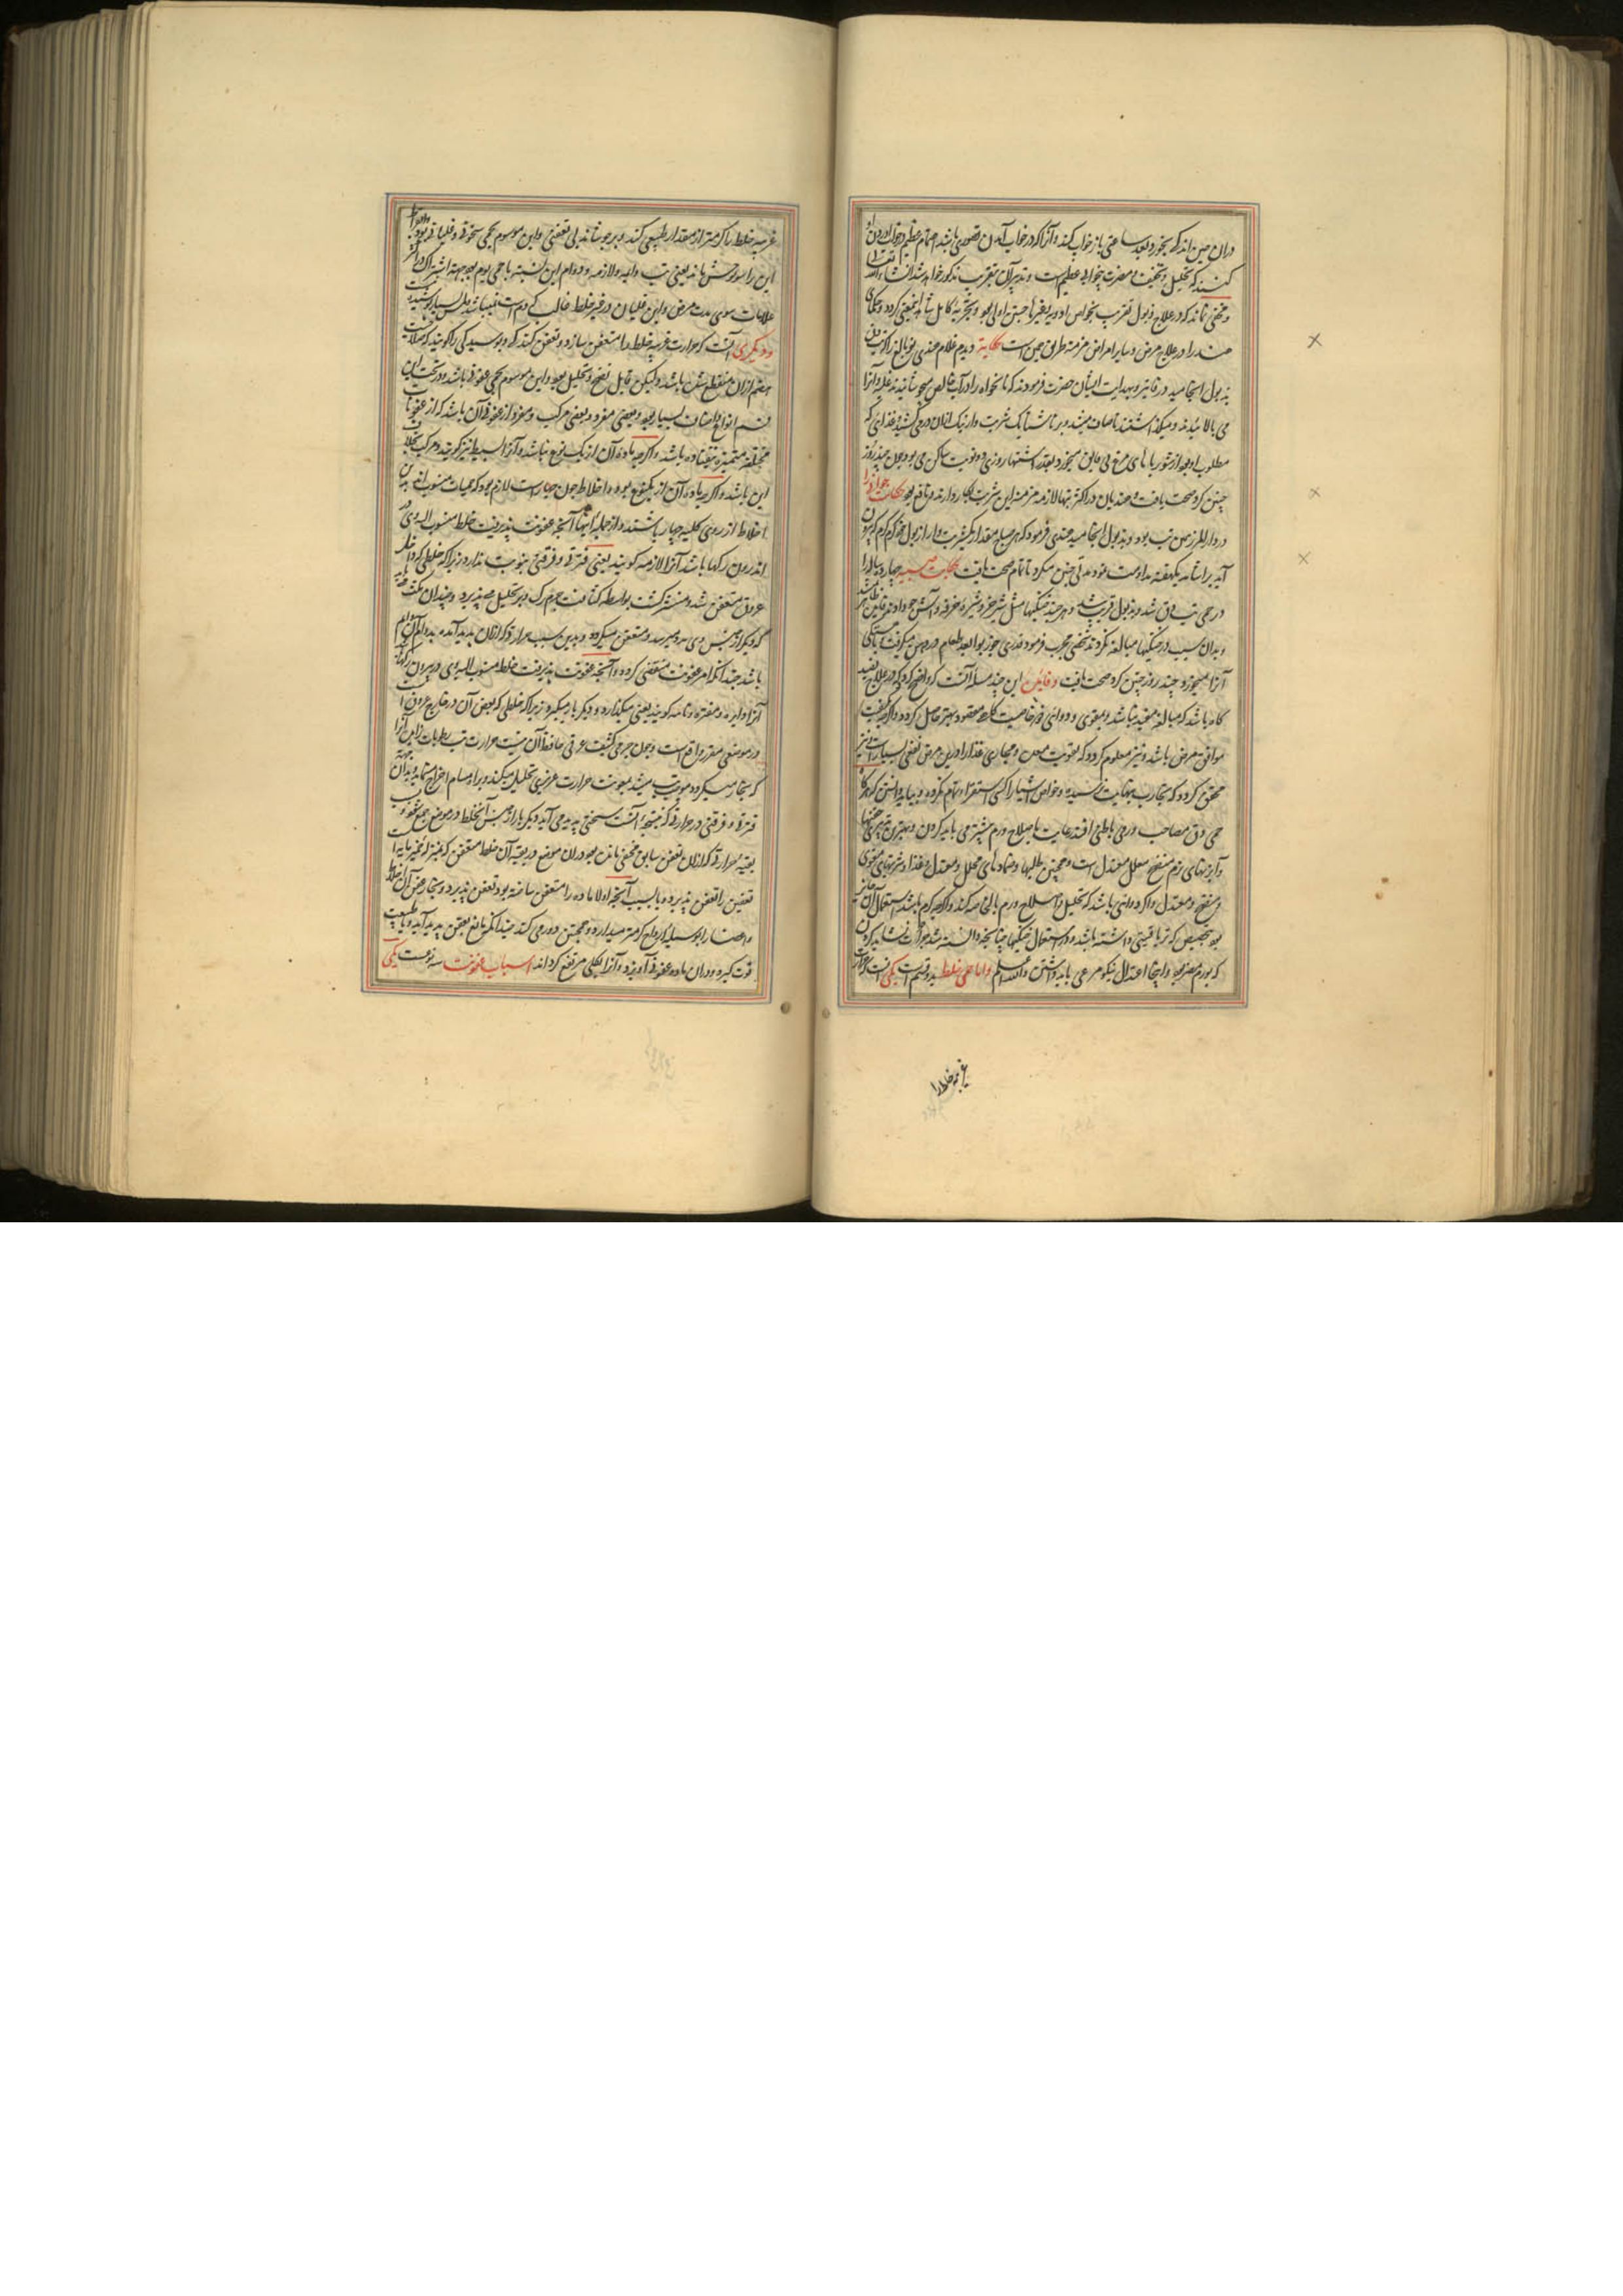 دران حین اندکی بخورد و بعد ساعتی باز خواب کند و آنرا که در خواب آمدن تصوری باشد اهتمام عظیم در خواب آوردن او
کنند که تحلیل و تجفیف و مضرت بیخوابی عظیم است و تدبیر آن بقریب مذکور خواهد شد انشاء الله تعالی
و مخفی نماند که در علاج ذبول تقریب بخواص ادویه و غیرها جستن اولی بود و بتجربه کامل شاید نفعی کردد و حکمای
هند را در علاج مرض و سایر امراض مزمنه طریق همین است حکایة دیدم غلام هندی نو بالغ را که تب دق
بذبول انجامیده در قاین و بهدایت ایشان حضرت فرمودند که نانخواه را در آب خالص میجوشانیدند و آنرا
می بالائیدند و میکذاشتند تا صاف میشد و بر ناشتا یک شربت وار نیک ازان در می کشید و غذائی که
مطلوب او بود از شوربا بای مرغ بی میخورد و بعد اشتها روزی دو نوبت ساکن می بود چون چند روز
چنین کرد صحت یافت و هندیان در اکثر تبهای لازمه مزمنه این شربت بکار دارند و نافع بود حکایت جوانی را
در دار المرز همین تب بوده و بذبول انجامید هندی فرمود که هر صباح مقدار یکشربت وار از بول خود کرم کرم که بیرون
آید براشامد یکهفته مداومت نمود مدتی چنین میکرد تا تمام صحت یافت حکایت صبیه چهارده ساله را
در حمی تب دق شد و بذبول قریب شد و هر چند خنکیها مثل شیر خر و شیره خرفه و آش جو دادند فایده ظاهر نشد
و بدان سبب در خنکیها مبالغه نکردند شخصی مجرب فرمود قدری جوز بوا بعد طعام در دهن میکرفت باهستکی
آنرا میخورد چند روز چنین کرد صحت یافت و فایده این چند مسله آنست که واضح کردد که در علاج تبفید
کاه باشد که مبالغه مفید نباشد و مقوی و دوائی ذو خاصیت کار مقصود بهتر حاصل کردد و اکرچه بکیفیت
موافق مرض باشد و نیز معلوم کردد که تقویت معده و مجاری غذا را درین مرض نفعی بسیار است و نیز
محقق کردد که تجارب بنهایت نرسیده و خواص اشیا را کسی استقرا و تمام نکرده و بباید دانستن که هرکاه
حمی دق مصاحب ورمی باطنی افتد رعایت باصلاح ورم بیشتر می باید کردن و بهترین تدبیری حقنها
و آبزنهای نرم منضج محلل معتدل است و همچنین طلیها و ضمادهای محلل و معتدل و غذا و شربتهای مقوی
و منضج و معتدل و اکر دوائی باشد که تحلیل و اصلاح ورم بالخاصه کند و اکرچه کرم باشد استعمال آن جایز
بود بتخصیص که تریاقیتی داشته باشد و در استعمال خنکیها چنانچه دانسته شد جرأت نشاید کردن
که بورم مضر بود و اینجا اعتدال نیکو مرعی باید داشتن والله اعلم و اما حمی خلط بدو قسم است یکی آنست که حرارت
غریبه خلط را
غریبه خلط را کرمتر از مقدار طبیعی کند و بر جوشاند بی تعفنی و این موسوم بحمی سخونی و غلیانی بود و اطبا
این را سونوخس خوانند یعنی تب دایمه و لازمه و دوام این نسبت با حمی یوم بود جهت اشتراک در اکثر
علامات سوی مدت مرض و این غلیان در غیر خلط غالب که دم است نمیباشد بلی بسیار کوشیده
و دیکری آنست که حرارت غریبه خلط را متعفن سازد و تعفن کنند که و بوسیدکی را کویند که صلاحیت
هضم ازان منقطع شده باشد و لیکن قابل نضج و تحلیل بود و این موسوم بحمی عفونی باشد و در تحت این
قسم انواع و اصناف بسیار بود و بعضی مفرد و بعضی مرکب و مفرد از عفونی آن باشد که از عفونات
مختلفه متمیزه نیفتاده باشد و اکرچه ماده آن از یک نوع نباشد و آنرا بسیط نیز کویند و مرکب بخلاف
این باشد و اکرچه ماده آن از یکنوع بود و اخلاط چون چهار است لازم بود که حمیات منسوب باین
اخلاط از روی کلیه چهار باشند و از جمله اینها آنچه عفونت پذیرفت خلط منسوب الیه وی در
اندرون رکها باشد آنرا لازمه کویند یعنی فترة و فرقتی بنوبت ندارد زیرا که خلطی که داخل
عروق متعفن شد و منتشر کشت بواسطه کثافت جرم رک دیر تحلیل می پذیرد و چندان مکث مینماید
که دیکر از جنس وی مدد میرسد و متعفن میکردد و بدین سبب حرارتی که ازان پدید آمده بدوام آن دوام
باشد چندانکه امر عفونت منقضی کردد و آنچه عفونت پذیرفت خلط منسوب الیه وی در بیرون رکها باشد
آنرا دایره و مفتره و نائبه کویند یعنی میکذارد و دیکر بار میکیرد زیرا که خلطی که بعض آن در خارج عروق است
در موضعی مقرر واقع است و چون جرمی کثیف عرقی حافظ آن نیست حرارت تب رطوبات از این آنرا
که بتجارب میکردد موجب تب میشد بمعونت حرارت غریزی تحلیل میکند و بر او مسام اخراج مینماید و بدان جهة
فترة و فرقتی در حرارتی که نتیجه آنست سختی پدید می آید و دیکر بار از جنس آن خلط در موضع جمع میشود و بسبب
بقیه حرارتی که ازان تعفن سابق مخفی مانده بود دران موضع در بقیه آن خلط متعفن که بمنزله خمیر مایه است
تعفن را تعفن پذیرد و یا بسبب آنچه اولا ماده را متعفن ساخته بود تعفن پذیرد و بتجار عفن آن اخلاط
و اعضا را بوسیله ارواح کرمتر میدارد و همچنین دور می کند چندانکه مانع تعفن پدید آید و یا طبیعت
قوت کیرد و دران ماده عفونی آویزد و آنرا بکلی مرتفع کرداند اسباب عفونت سه نوعست یکی